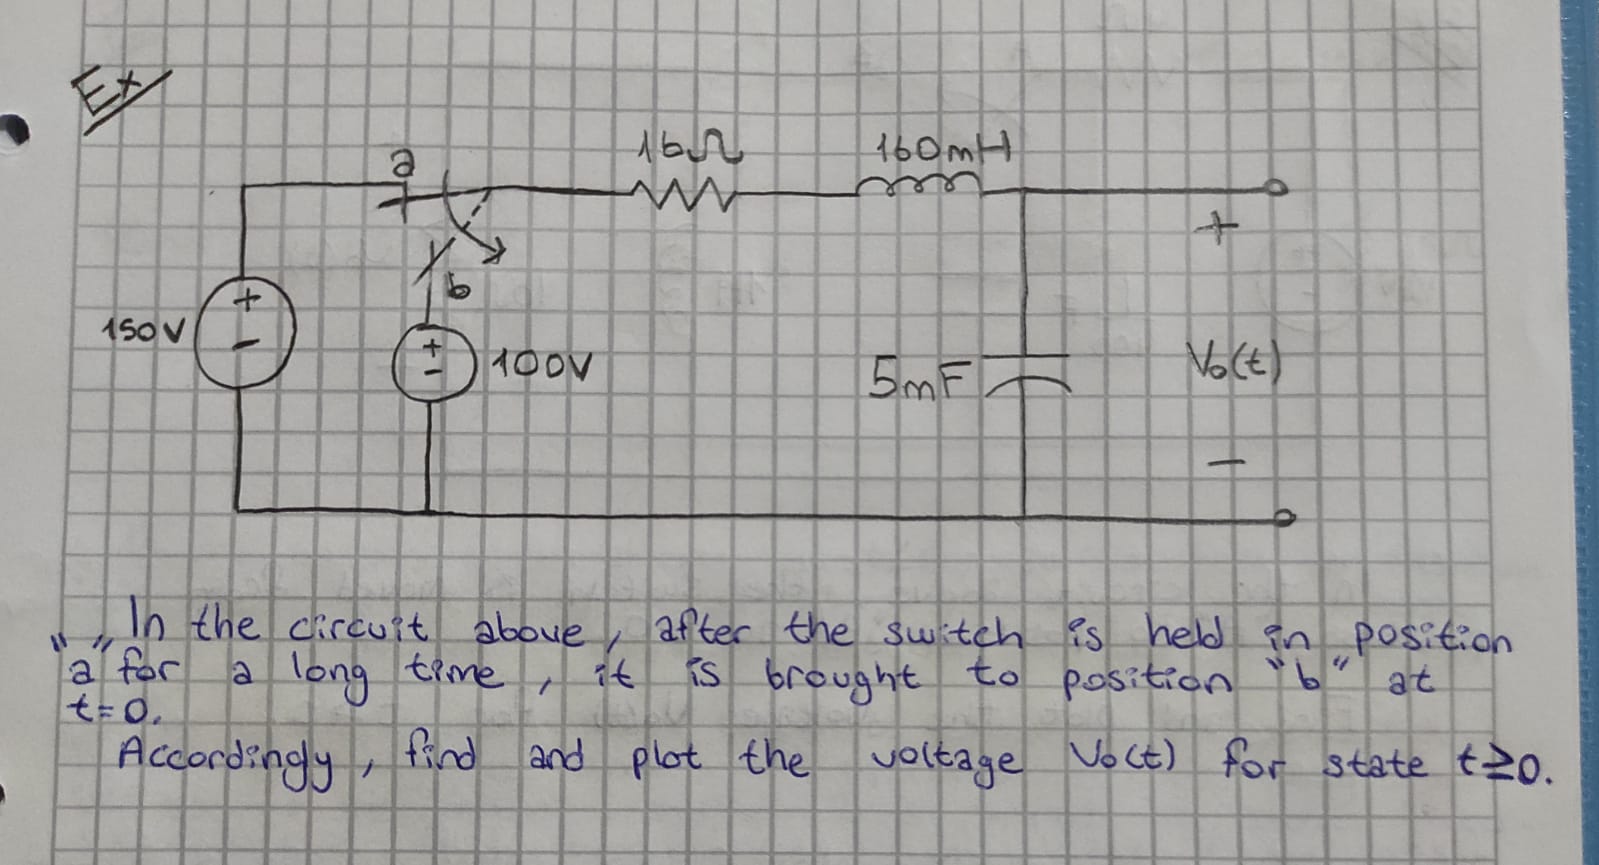 Ex
a
16Ω
160mH
+
b
+
-
150V
+
-
100V
5mF
Vo(t)
-
In the circuit above, after the switch is held in position
"a" for a long time, it is brought to position "b" at
t=0.
Accordingly, find and plot the voltage Vo(t) for state t≥0.